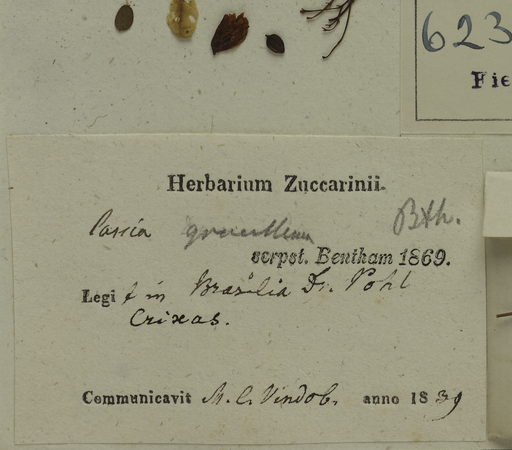 623
Fie
Herbarium Zuccarinii.
Cassia Bth.
scrpst. Bentham 1869.
Legit in Brasilia Dr. Pohl
Crixas.
Communicavit M. C. Vindob. anno 1839